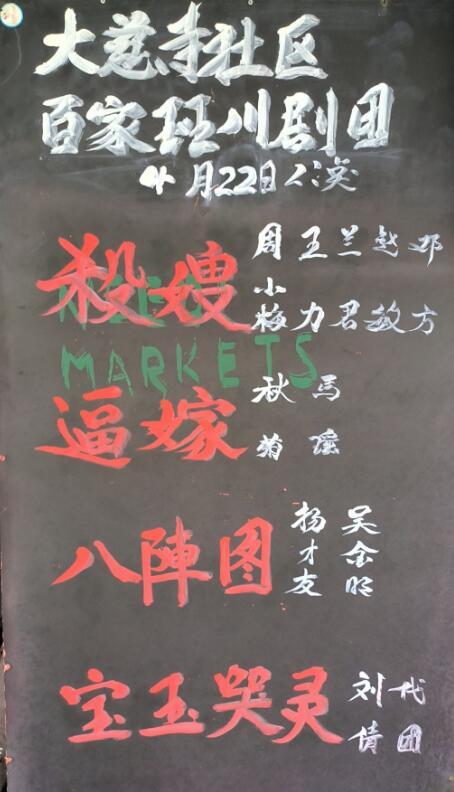 大慈寺社区
百家班川剧团
4月22日公演
殺嫂
周 王 兰 越 邓
小
梅 力 君 敏 方
MARKETS
逼嫁
秋 马
菊 瑶
八陣图
扬才友 吴金明
宝玉哭灵
刘倩 代团